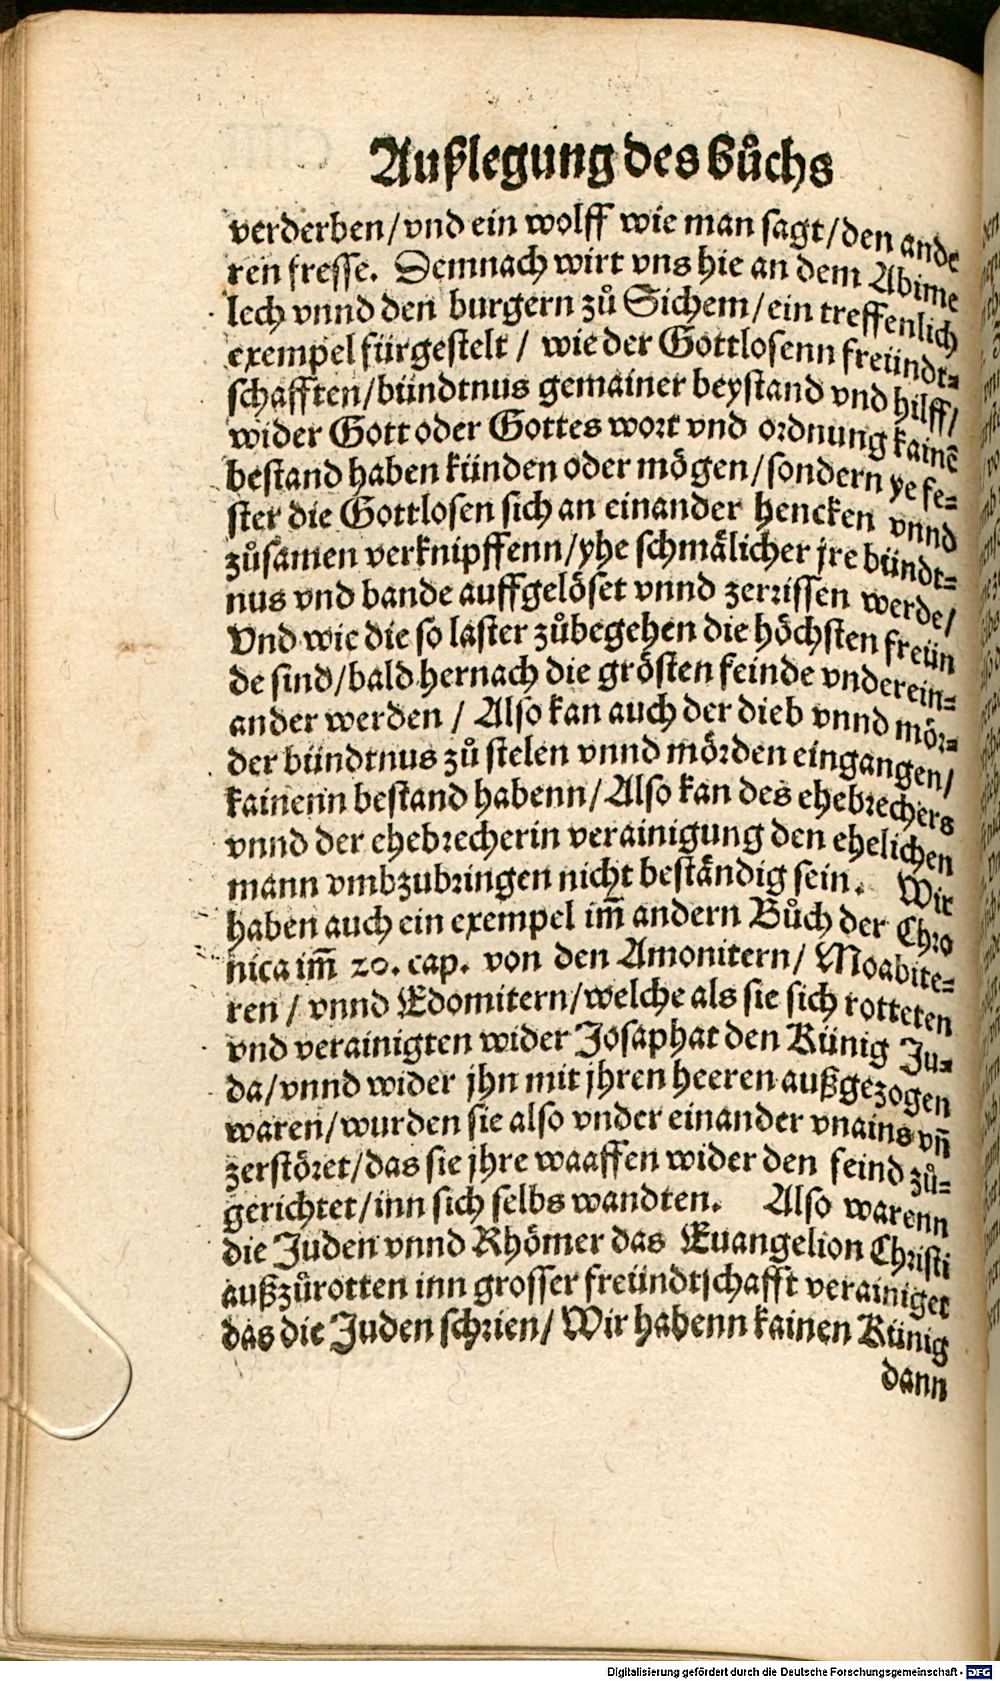 Außlegung des Bůchs
verderben/vnd ein wolff wie man sagt/den ande
ren fresse. Demnach wirt vns hie an dem Abime
lech vnnd den burgern zů Sichem/ein treffenlich
exempel fürgestelt / wie der Gottlosenn freündt-
schafften/bündtnus gemainer beystand vnd hilff/
wider Gott oder Gottes wort vnd ordnung kainē
bestand haben künden oder mögen/sondern ye fe-
ster die Gottlosen sich an einander hencken vnnd
zůsamen verknipffenn/yhe schmälicher jre bündt-
nus vnd bande auffgelöset vnnd zerrissen werde/
Vnd wie die so laster zůbegehen die höchsten freün
de sind/bald hernach die grösten feinde vnderein-
ander werden / Also kan auch der dieb vnnd mör-
der bündtnus zů stelen vnnd mörden eingangen/
kainenn bestand habenn/Also kan des ehebrechers
vnnd der ehebrecherin verainigung den ehelichen
mann vmbzubringen nicht beständig sein. Wir
haben auch ein exempel im̄ andern Bůch der Chro
nica im̄ 20. cap. von den Amonitern/ Moabite-
ren / vnnd Edomitern/welche als sie sich rotteten
vnd verainigten wider Josaphat den Künig Ju-
da/vnnd wider jhn mit jhren heeren außgezogen
waren/wurden sie also vnder einander vnains vn̄
zerstöret/das sie jhre waaffen wider den feind zů-
gerichtet/inn sich selbs wandten. Also warenn
die Juden vnnd Rhömer das Euangelion Christi
außzůrotten inn grosser freündtschafft verainiget
das die Juden schrien/ Wir habenn kainen Künig
dann
Digitalisierung gefördert durch die Deutsche Forschungsgemeinschaft - DFG